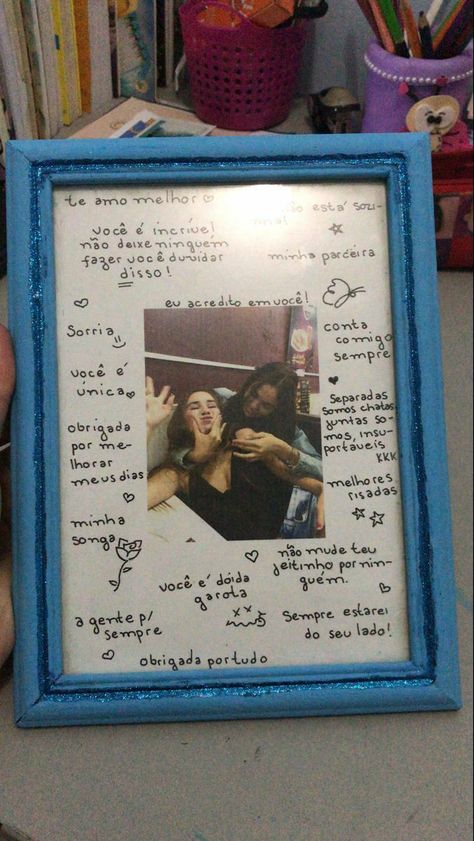 te amo melhor
está sozi-
você é incrível
não deixe ninguém
fazer você duvidar
disso!
minha parceira
eu acredito em você!
Sorria
conta
comigo
sempre
você é
única
Separadas
somos chatas
juntas so-
mos, insu-
portaveis
KKK
obrigada
por me-
lhorar
meus dias
melhores
risadas
minha
songa
não mude teu
jeitinho por nin-
guém.
você é dóida
garota
a gente p/
sempre
Sempre estarei
do seu lado!
obrigada por tudo